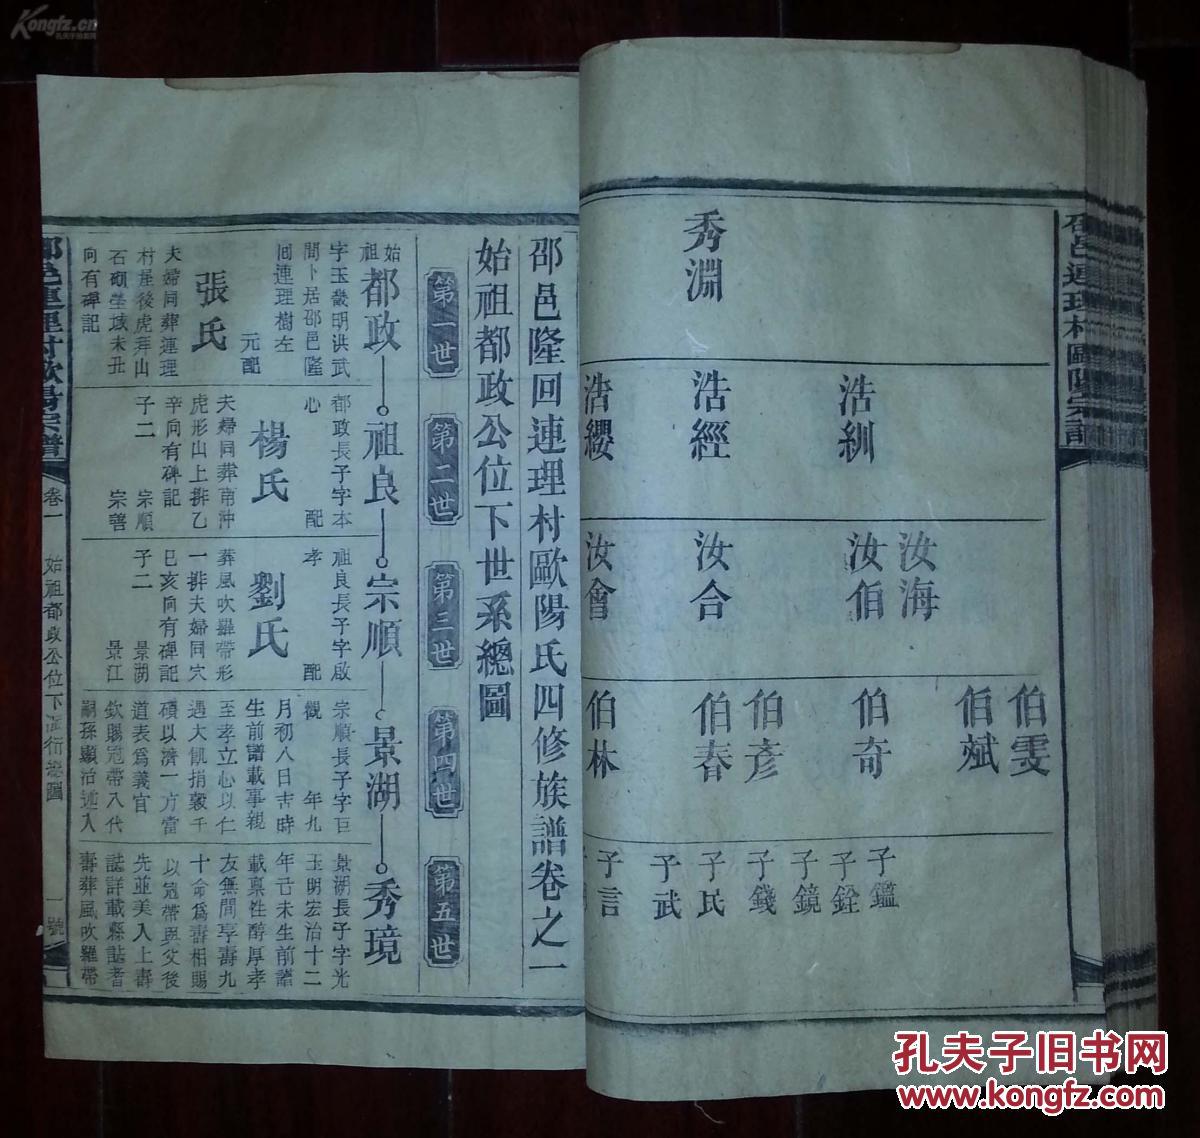 Kongfz.cn
孔夫子拍卖网
邑連理村歐陽宗譜
秀淵
浩紃
浩經
浩纓
汝海
汝伯
汝合
汝會
伯雯
伯斌
伯奇
伯彥
伯春
伯林
子鑑
子銓
子鏡
子錢
子民
子武
子言
邵邑隆回連理村歐陽氏四修族譜卷之一
始祖都政公位下世系總圖
第一世
第二世
第三世
第四世
第五世
始祖
都政
祖良
宗順
景湖
秀璄
字玉畿明洪武
間卜居邵邑隆
回連理樹左
元配
張氏
夫婦同葬連理
村屋後虎形山
石硯塋域未丑
向有碑記
都政長子字本
心
配
楊氏
夫婦同葬南沖
虎形山上排乙
辛向有碑記
子二
宗順
宗善
祖良長子字啟
孝
配
劉氏
葬風吹羅帶形
一排夫婦同穴
巳亥向有碑記
子二
景湖
景江
宗順長子字巨
觀
年九
月初八日吉時
生前譜載事親
至孝立心以仁
遇大飢捐穀千
碩以濟一方當
道表爲義官
欽賜冠帶入代
嗣孫顯治述入
景湖長子字光
玉明宏治十二
年己未生前譜
載稟性醇厚孝
友無間享壽九
十命爲壽相賜
以冠帶與父後
先並美入上壽
誌詳載縣誌者
壽葬風吹羅帶
邵邑連理村歐陽宗譜
卷一
始祖都政公位下
總圖
一號
孔夫子旧书网
www.kongfz.com